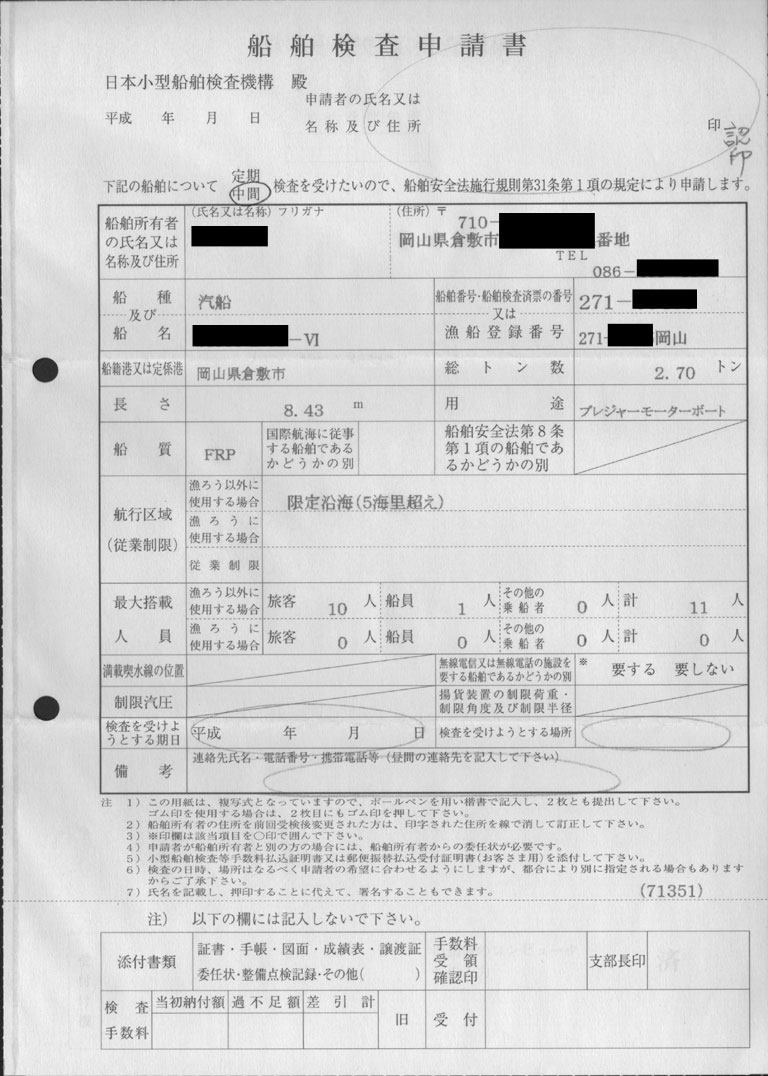 船舶検査申請書
日本小型船舶検査機構　殿
平成　年　月　日
申請者の氏名又は
名称及び住所
印
認印
下記の船舶について　定期　中間　検査を受けたいので、船舶安全法施行規則第31条第1項の規定により申請します。
船舶所有者の氏名又は名称及び住所
(氏名又は名称) フリガナ
(住所) 〒 710-
岡山県倉敷市　番地
TEL
086-
船種及び船名
汽船
-VI
船舶番号・船舶検査済票の番号又は漁船登録番号
271-
271-　岡山
船籍港又は定係港
岡山県倉敷市
総トン数
2.70 トン
長さ
8.43 m
用途
プレジャーモーターボート
船質
FRP
国際航海に従事する船舶であるかどうかの別
船舶安全法第8条第1項の船舶であるかどうかの別
航行区域(従業制限)
漁ろう以外に使用する場合
限定沿海(5海里超え)
漁ろうに使用する場合
従業制限
最大搭載人員
漁ろう以外に使用する場合　旅客 10 人　船員 1 人　その他の乗船者 0 人　計 11 人
漁ろうに使用する場合　旅客 0 人　船員 0 人　その他の乗船者 0 人　計 0 人
満載喫水線の位置
無線電信又は無線電話の施設を要する船舶であるかどうかの別
※　要する　要しない
制限汽圧
揚貨装置の制限荷重・制限角度及び制限半径
検査を受けようとする期日
平成　年　月　日
検査を受けようとする場所
備考
連絡先氏名・電話番号・携帯電話等(昼間の連絡先を記入して下さい)
注　1) この用紙は、複写式となっていますので、ボールペンを用い楷書で記入し、2枚とも提出して下さい。
ゴム印を使用する場合は、2枚目にもゴム印を押して下さい。
2) 船舶所有者の住所を前回受検後変更された方は、印字された住所を線で消して訂正して下さい。
3) ※印欄は該当項目を○印で囲んで下さい。
4) 申請者が船舶所有者と別の方の場合には、船舶所有者からの委任状が必要です。
5) 小型船舶検査等手数料払込証明書又は郵便振替払込受付証明書(お客さま用)を添付して下さい。
6) 検査の日時、場所はなるべく申請者の希望に合わせるようにしますが、都合により別に指定される場合もありますからご了承下さい。
7) 氏名を記載し、押印することに代えて、署名することもできます。
(71351)
注)　以下の欄には記入しないで下さい。
添付書類
証書・手帳・図面・成績表・譲渡証
委任状・整備点検記録・その他(　)
手数料受領確認印
支部長印
検査手数料
当初納付額　過不足額　差引計
旧
受付